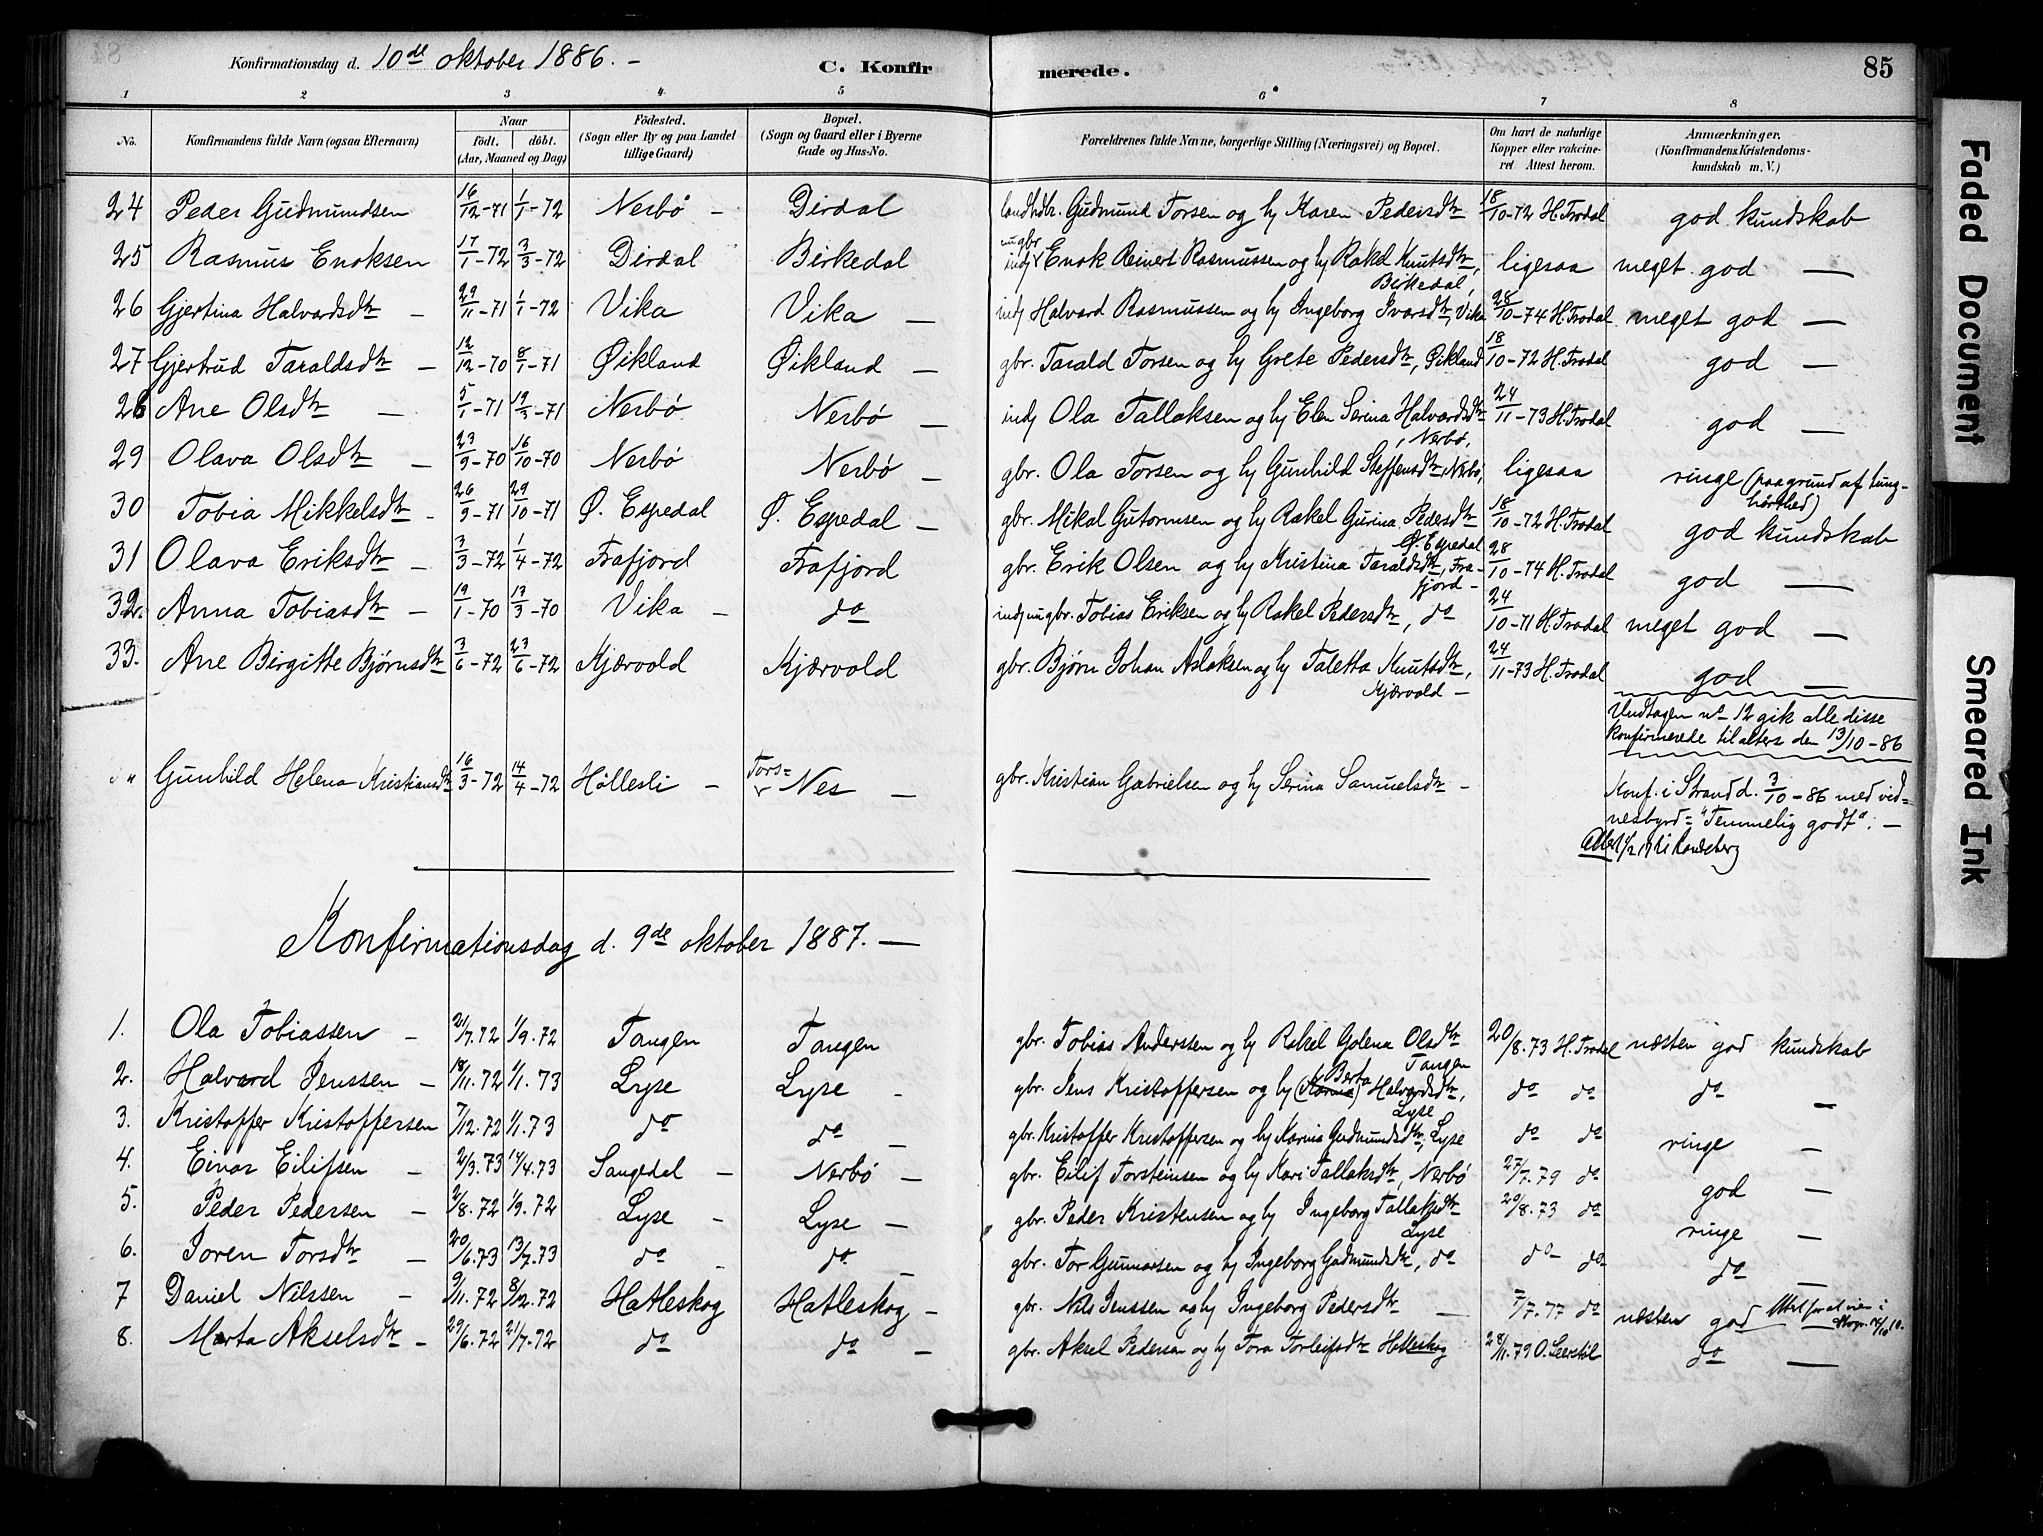 Konfirmationsdag d. 10de oktober 1886. -
C. Konfirmerede.
85
1 2 3 4 5 6 7 8
No. Konfirmandens fulde Navn (ogsaa Efternavn) Naar født. døbt. (Aar, Maaned og Dag) Fødested. (Sogn eller By og paa Landet tillige Gaard) Bopæl. (Sogn og Gaard eller i Byerne Gade og Hus-No. Forældrenes fulde Navne, borgerlige Stilling (Næringsvei) og Bopæl. Om havt de naturlige Kopper eller vakcineret Attest herom. Anmærkninger. (Konfirmandens Kristendomskundskab m. V.)
24 Peder Gudmundsen 16/12-71 1/1-72 Nerbö - Dirdal Gudmund Torsen og hu Karen Pedersdtr 18/10-72 H. Trodal god kundskab
25 Rasmus Enoksen 17/1-72 3/3-72 Dirdal Birkedal Enok Reinert Rasmussen og hu Rakel Knutsdtr, Birkedal, ligesaa meget god —
26 Gjertina Halvardsdtr - 29/11-71 1/1-72 Vika Vika — indj Halvard Rasmussen og hu Ingeborg Ivarsdtr, Vika 28/10-74 H. Trodal meget god —
27 Gjertrud Taraldsdtr - 12/12-70 8/1-71 Øikland Øikland — gbr. Tarald Torsen og hu Grete Pedersdtr, Øikland 18/10-72 H. Trodal god —
28 Ane Olsdtr - 5/1-71 19/3-71 Nerbö Nerbö — indj Ola Tallaksen og hu Elen Serina Halvardsdtr, Nerbö, 24/11-73 H. Trodal god —
29 Olava Olsdtr - 23/9-70 16/10-70 Nerbö Nerbö — gbr. Ola Torsen og hu Gunhild Steffensdtr, Nerbö, ligesaa ringe (paa grund af tunghørthed)
30 Tobia Mikkelsdtr - 26/9-71 29/10-71 Ø. Espedal Ø. Espedal — gbr. Mikal Gutormsen og hu Rakel Gurina Pedersdtr Ø. Espedal 18/10-72 H. Trodal god kundskab
31 Olava Eriksdtr - 3/3-72 1/4-72 Frafjord Frafjord gbr. Erik Olsen og hu Kristina Taraldsdtr, Frafjord - 28/10-74 H. Trodal god —
32. Anna Tobiasdtr - 19/1-70 13/3-70 Vika - do indj ungbr. Tobias Eriksen og hu Rakel Pedersdtr, do 24/10-71 H. Trodal meget god —
33. Ane Birgitte Bjørnsdtr 3/6-72 23/6-72 Kjærvold Kjærvold gbr. Bjørn Johan Aslaksen og hu Taletta Knutsdtr, Kjærvold - 24/11-73 H. Trodal god —
Undtagen no 12 gik alle disse
konfirmerede til alters den 13/10-86
Gunhild Helena Kristiansdtr 16/3-72 14/4-72 Hölleslí - Nes — gbr. Kristian Gabrielsen og hu Serina Samuelsdtr -
Konf. i Strand d. 3/10-86 med vid-
nesbyrd = "Temmelig godt". —
Konfirmationsdag d. 9de oktober 1887. —
1. Ola Tobiassen - 21/7.72 1/9.72 Tangen Tangen gbr. Tobias Anderssen og hu Rakel Golena Olsdtr Tangen 20/8.73 H. Trodal næsten god kundskab
2. Halvard Jenssen - 18/11.72 1/1.73 Lyse Lyse - gbr. Jens Kristoffersen og hu (Karina) Berta Halvardsdtr, Lyse do do do —
3. Kristoffer Kristoffersen 7/12.72 1/1.73 do do — gbr. Kristoffer Kristoffersen og hu Karina Gudmundsdtr, Lyse do do ringe —
4. Einar Eilifsen - 2/3.73 14/4.73 Sangedal - Nerbö — gbr. Eilif Torsteinsen og hu Kari Tallaksdtr, Nerbö 27/7.79 do god —
5. Peder Pedersen - 2/8.72 1/9.72 Lyse - Lyse — gbr. Peder Kristensen og hu Ingeborg Tallaksdtr Lyse 20/8.73 do ringe —
6. Joren Torsdtr - 20/6.73 13/7.73 do - do — gbr. Tor Gunnarsen og hu Ingeborg Gudmundsdtr, do do do do —
7 Daniel Nilssen - 9/11.72 8/12.72 Hatleskog Hatleskog - gbr. Nils Jenssen og hu Ingeborg Pedersdtr — 7/7.77 do næsten god
8. Marta Akselsdtr - 29/6.72 21/7.72 do do — gbr. Aksel Pedersen og hu Tora Torleifsdtr Hatleskog 28/11.79 do —
Faded Document
Smeared Ink